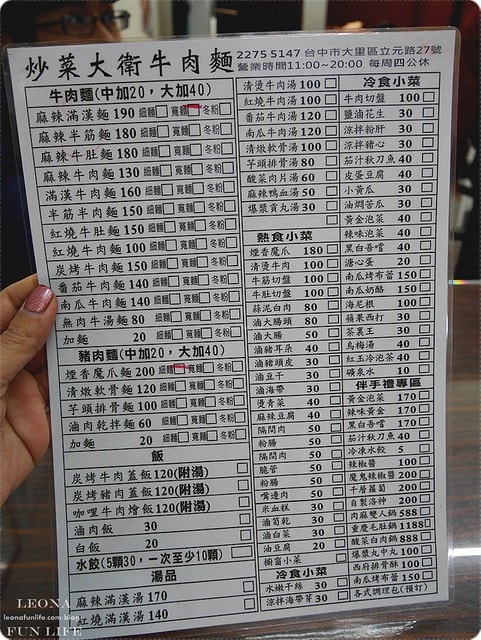 炒菜大衛牛肉麵
2275 5147 台中市大里區立元路27號
營業時間11:00~20:00 每周四公休
牛肉麵(中加20，大加40)
麻辣滿漢麵 190 細麵 寬麵 冬粉
麻辣半筋麵 180 細麵 寬麵 冬粉
麻辣牛肚麵 180 細麵 寬麵 冬粉
麻辣牛肉麵 130 細麵 寬麵 冬粉
滿漢牛肉麵 160 細麵 寬麵 冬粉
半筋半肉麵 150 細麵 寬麵 冬粉
紅燒牛肚麵 150 細麵 寬麵 冬粉
紅燒牛肉麵 100 細麵 寬麵 冬粉
炭烤牛肉麵 150 細麵 寬麵 冬粉
番茄牛肉麵 140 細麵 寬麵 冬粉
南瓜牛肉麵 140 細麵 寬麵 冬粉
無肉牛湯麵 80 細麵 寬麵 冬粉
加麵 20 細麵 寬麵 冬粉
豬肉麵(中加20，大加40)
煙香魔爪麵 200 細麵 寬麵 冬粉
清燉軟骨麵 120 細麵 寬麵 冬粉
芋頭排骨麵 100 細麵 寬麵 冬粉
滷肉乾拌麵 60 細麵 寬麵 冬粉
加麵 20 細麵 寬麵 冬粉
飯
炭烤牛肉蓋飯 120(附湯)
炭烤豬肉蓋飯 120(附湯)
咖哩牛肉燴飯 120(附湯)
滷肉飯 30
白飯 20
水餃(5顆30，一次至少10顆)
湯品
麻辣滿漢湯 170
紅燒滿漢湯 140
清燙牛肉湯 100
紅燒牛肉湯 100
番茄牛肉湯 120
南瓜牛肉湯 120
清燉軟骨湯 100
芋頭排骨湯 80
酸菜肉片湯 60
麻辣鴨血湯 50
爆漿貢丸湯 30
熱食小菜
煙香魔爪 180
清燙牛肉 100
牛筋切盤 100
牛肚切盤 100
蒜泥白肉 80
滷大腸頭 80
滷大腸 50
滷豬耳朵 40
滷豬頭皮 30
滷豆干 30
滷海帶 30
燙青菜 40
麻辣豆腐 40
隔間肉 50
粉腸 50
隔間肉 50
脆管 50
粉腸 50
嘴邊肉 50
米血糕 30
滷筍乾 30
滷白菜 30
油豆腐 20
櫥窗小菜
冷食小菜
水嫩干絲 30
涼拌海帶芽 30
冷食小菜
牛肉切盤 100
鹽滷花生 30
涼拌粉肝 30
涼拌豬心 30
茄汁秋刀魚 40
皮蛋豆腐 40
小黃瓜 30
油燜苦瓜 30
黃金泡菜 40
辣味泡菜 40
黑白吾嚐 40
溏心蛋 20
南瓜烤布蕾 150
南瓜奶酪 150
海尼根 100
蘋果西打 30
茶裏王 30
烏梅湯 40
紅玉冷泡茶 40
礦泉水 10
伴手禮專區
黃金泡菜 170
辣味黃金 170
黑白吾嚐 170
茄汁秋刀魚 40
冷凍水餃 5
辣椒醬 100
魔鬼辣椒醬 200
千層蘿蔔 200
自製洛神 200
肉麻雙人鍋 588
重慶毛肚鍋 1188
酸菜白肉鍋 888
爆漿丸中丸 100
西府排骨酥 100
南瓜烤布蕾 150
各式調理包(預訂)
LEONA
leonafunlife.com/blog
FUN LIFE